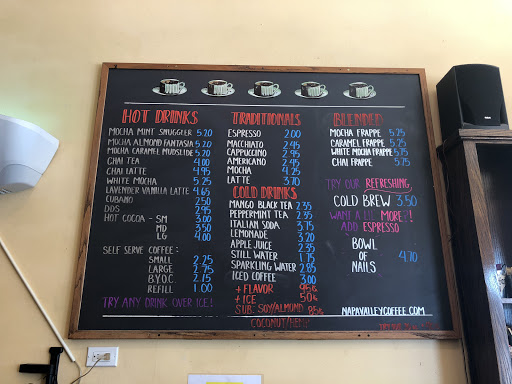 HOT DRINKS
MOCHA MINT SMUGGLER 5.20
MOCHA ALMOND FANTASIA 5.20
MOCHA CARAMEL MUDSLIDE 5.20
CHAI TEA 4.00
CHAI LATTE 4.95
WHITE MOCHA 5.25
LAVENDER VANILLA LATTE 4.65
CUBANO 2.50
DDS 2.95
HOT COCOA - SM 3.00
MD 3.50
LG 4.00
SELF SERVE COFFEE:
SMALL 2.25
LARGE 2.75
B.Y.O.C. 2.15
REFILL 1.00
TRY ANY DRINK OVER ICE!
TRADITIONALS
ESPRESSO 2.00
MACCHIATO 2.45
CAPPUCCINO 2.95
AMERICANO 2.95
MOCHA 4.25
LATTE 3.70
COLD DRINKS
MANGO BLACK TEA 2.35
PEPPERMINT TEA 2.35
ITALIAN SODA 3.75
LEMONADE 3.20
APPLE JUICE 2.35
STILL WATER 1.75
SPARKLING WATER 2.85
ICED COFFEE 3.00
+ FLAVOR 95¢
+ ICE 50¢
SUB: SOY/ALMOND 85¢
COCONUT/HEMP
BLENDED
MOCHA FRAPPE 5.25
CARAMEL FRAPPE 5.25
WHITE MOCHA FRAPPE 5.75
CHAI FRAPPE 5.75
TRY OUR REFRESHING,
COLD BREW 3.50
WANT A LIL MORE?!
ADD ESPRESSO
BOWL
OF 4.70
NAILS
NAPAVALLEYCOFFEE.COM